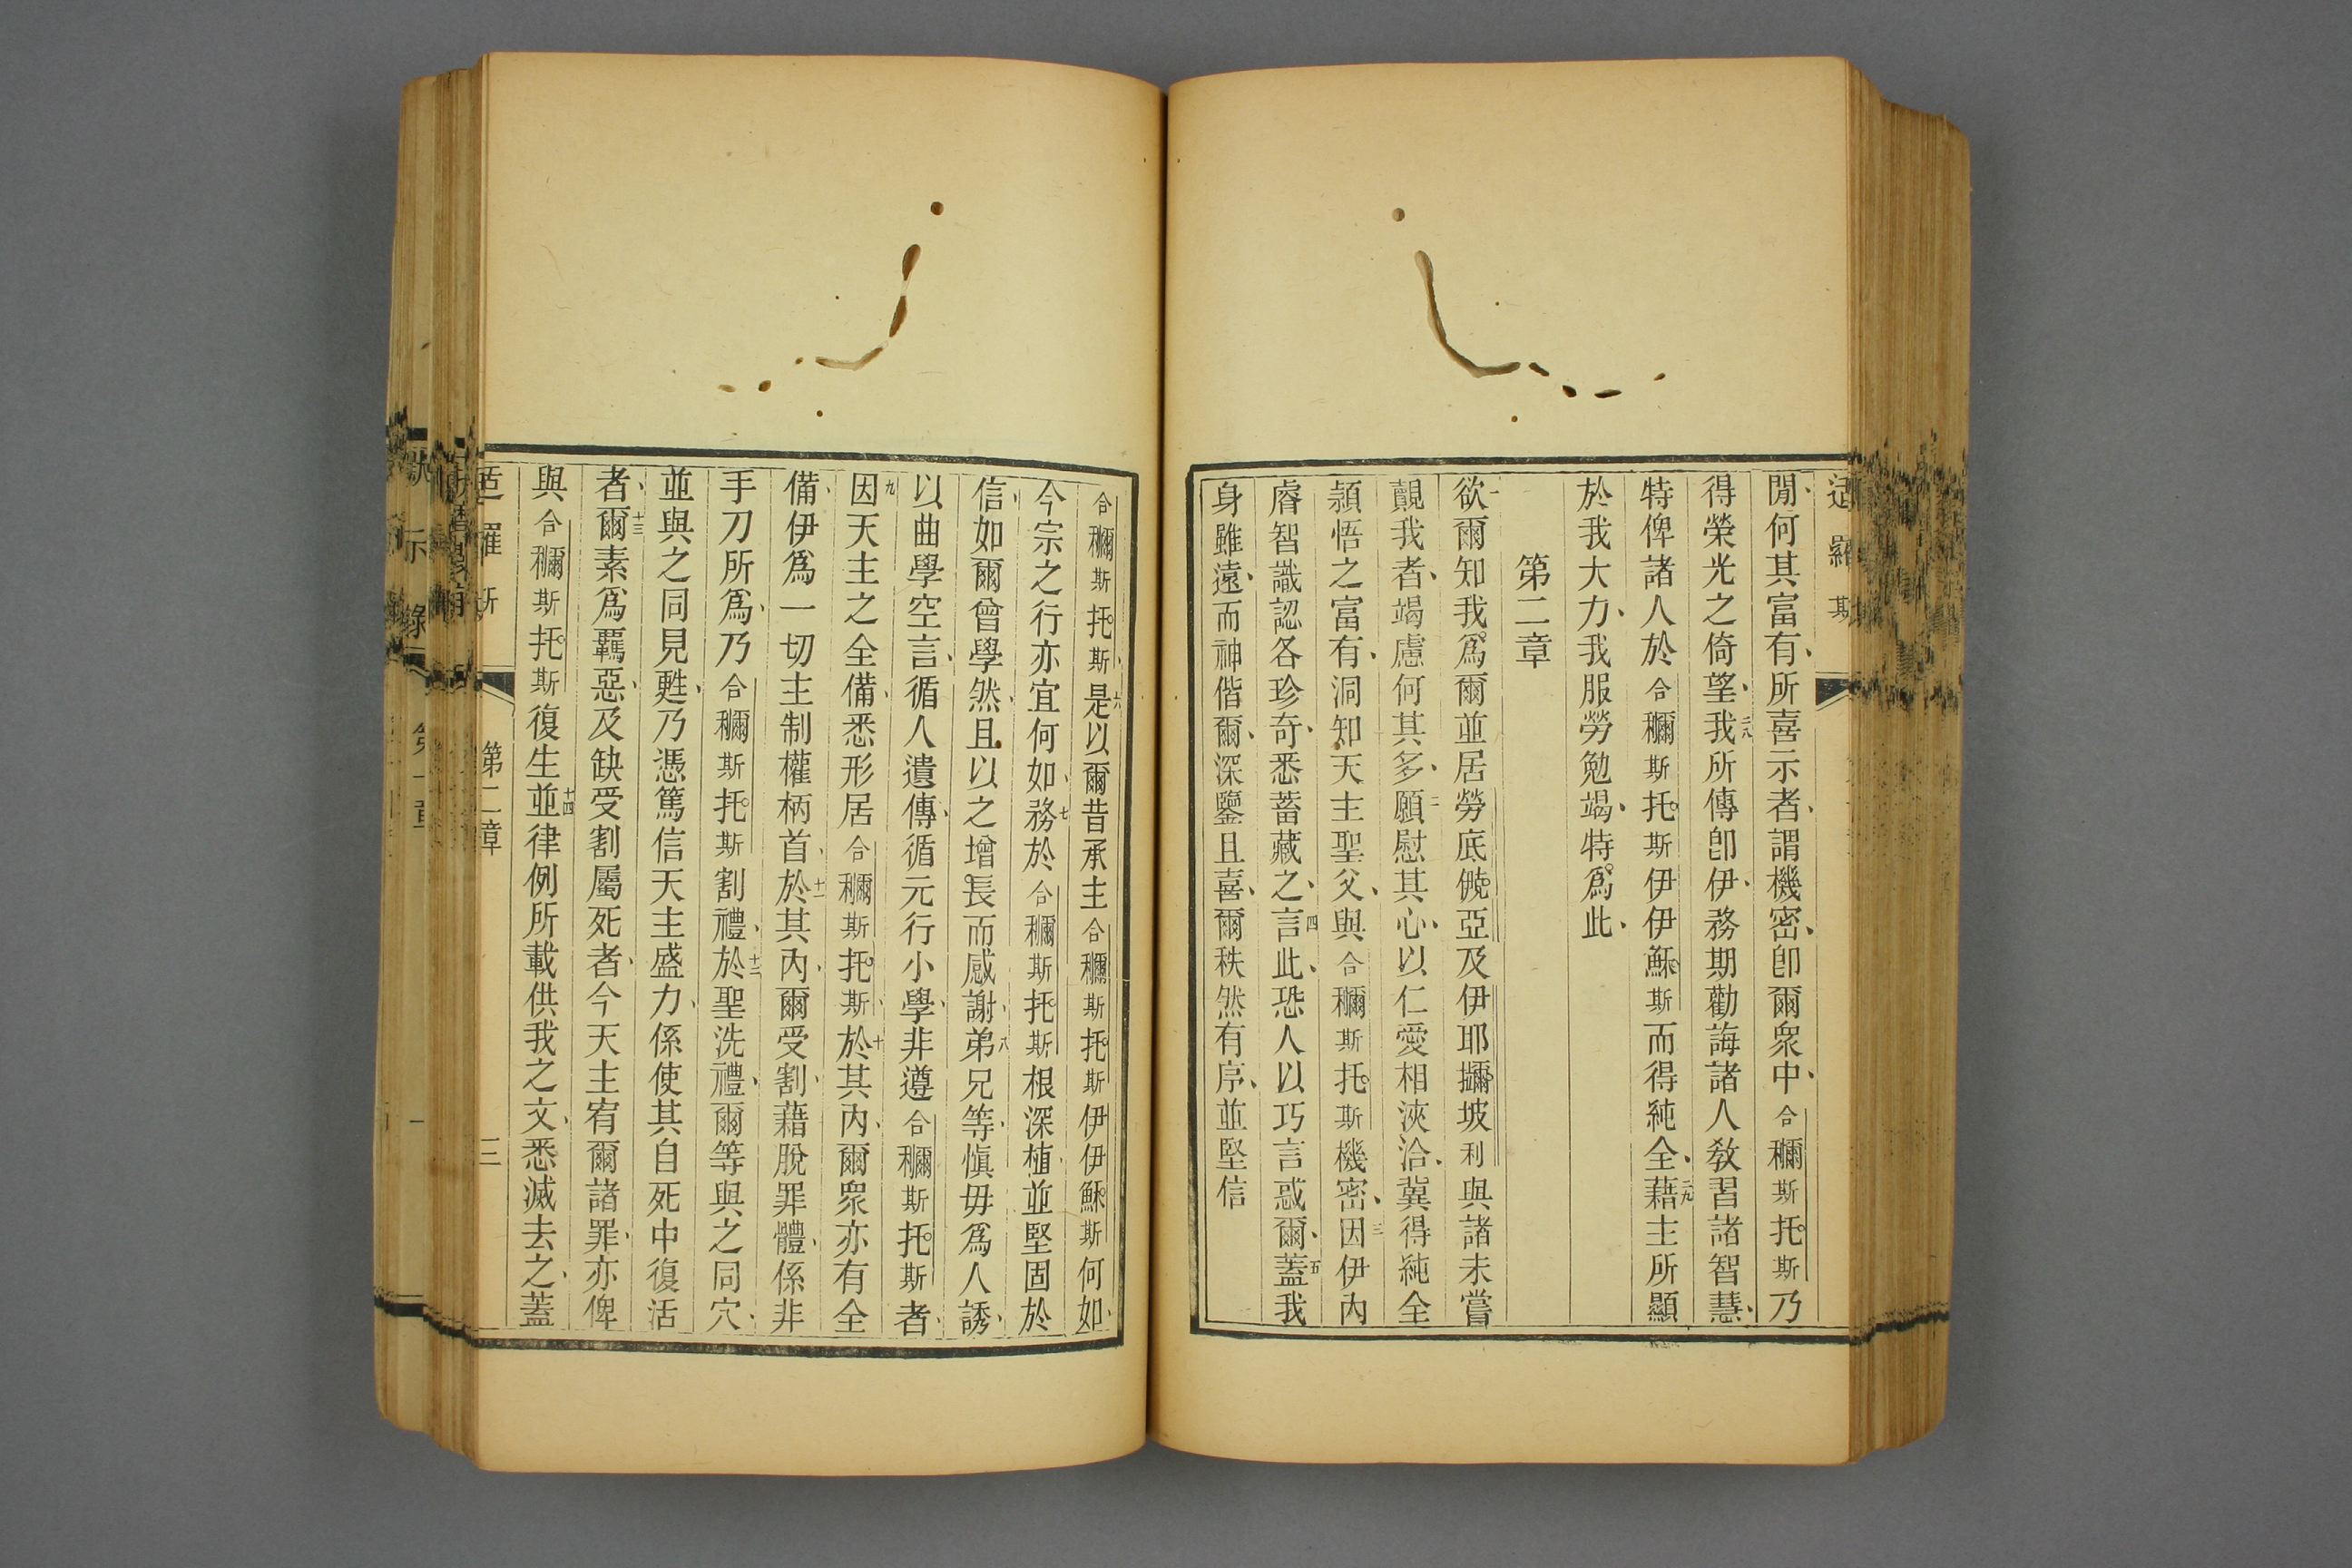 閒、何其富有、所喜示者、謂機密、卽爾衆中、合穪斯托斯乃
得榮光之倚望、二八我所傳卽伊、務期勸誨諸人敎習諸智慧、
特俾諸人於合穪斯托斯伊伊穌斯而得純全、二九藉主所顯
於我大力、我服勞勉竭、特爲此、
第二章
一欲爾知我爲爾並居勞底㑴亞及伊耶擟坡利與諸未嘗
覿我者、竭慮何其多、二願慰其心、以仁愛相浹洽、冀得純全
頴悟之富有、洞知天主聖父、與合穪斯托斯機密、三因伊內
睿智識認各珍奇、悉蓄藏之、四言此、恐人以巧言惑爾、五蓋我
身雖遠、而神偕爾、深鑒且喜、爾秩然有序、並堅信
合穪斯托斯、六是以爾昔承主合穪斯托斯伊伊穌斯何如、
今宗之行亦宜何如、七務於合穪斯托斯根深植、並堅固於
信、如爾曾學然、且以之增長而感謝、八弟兄等、愼毋爲人誘、
以曲學空言、循人遺傳、循元行小學、非遵合穪斯托斯者、
九因天主之全備、悉形居合穪斯托斯、十於其內、爾衆亦有全
備、伊爲一切主制權柄首、十一於其內、爾受割、藉脫罪體、係非
手刀所爲、乃合穪斯托斯割禮、十二於聖洗禮、爾等與之同穴、
並與之同見甦、乃憑篤信天主盛力、係使其自死中復活
者、十三爾素爲羈惡、及缺受割屬死者、今天主宥爾諸罪、亦俾
與合穪斯托斯復生、十四並律例所載供我之文、悉滅去之、蓋
第二章
三